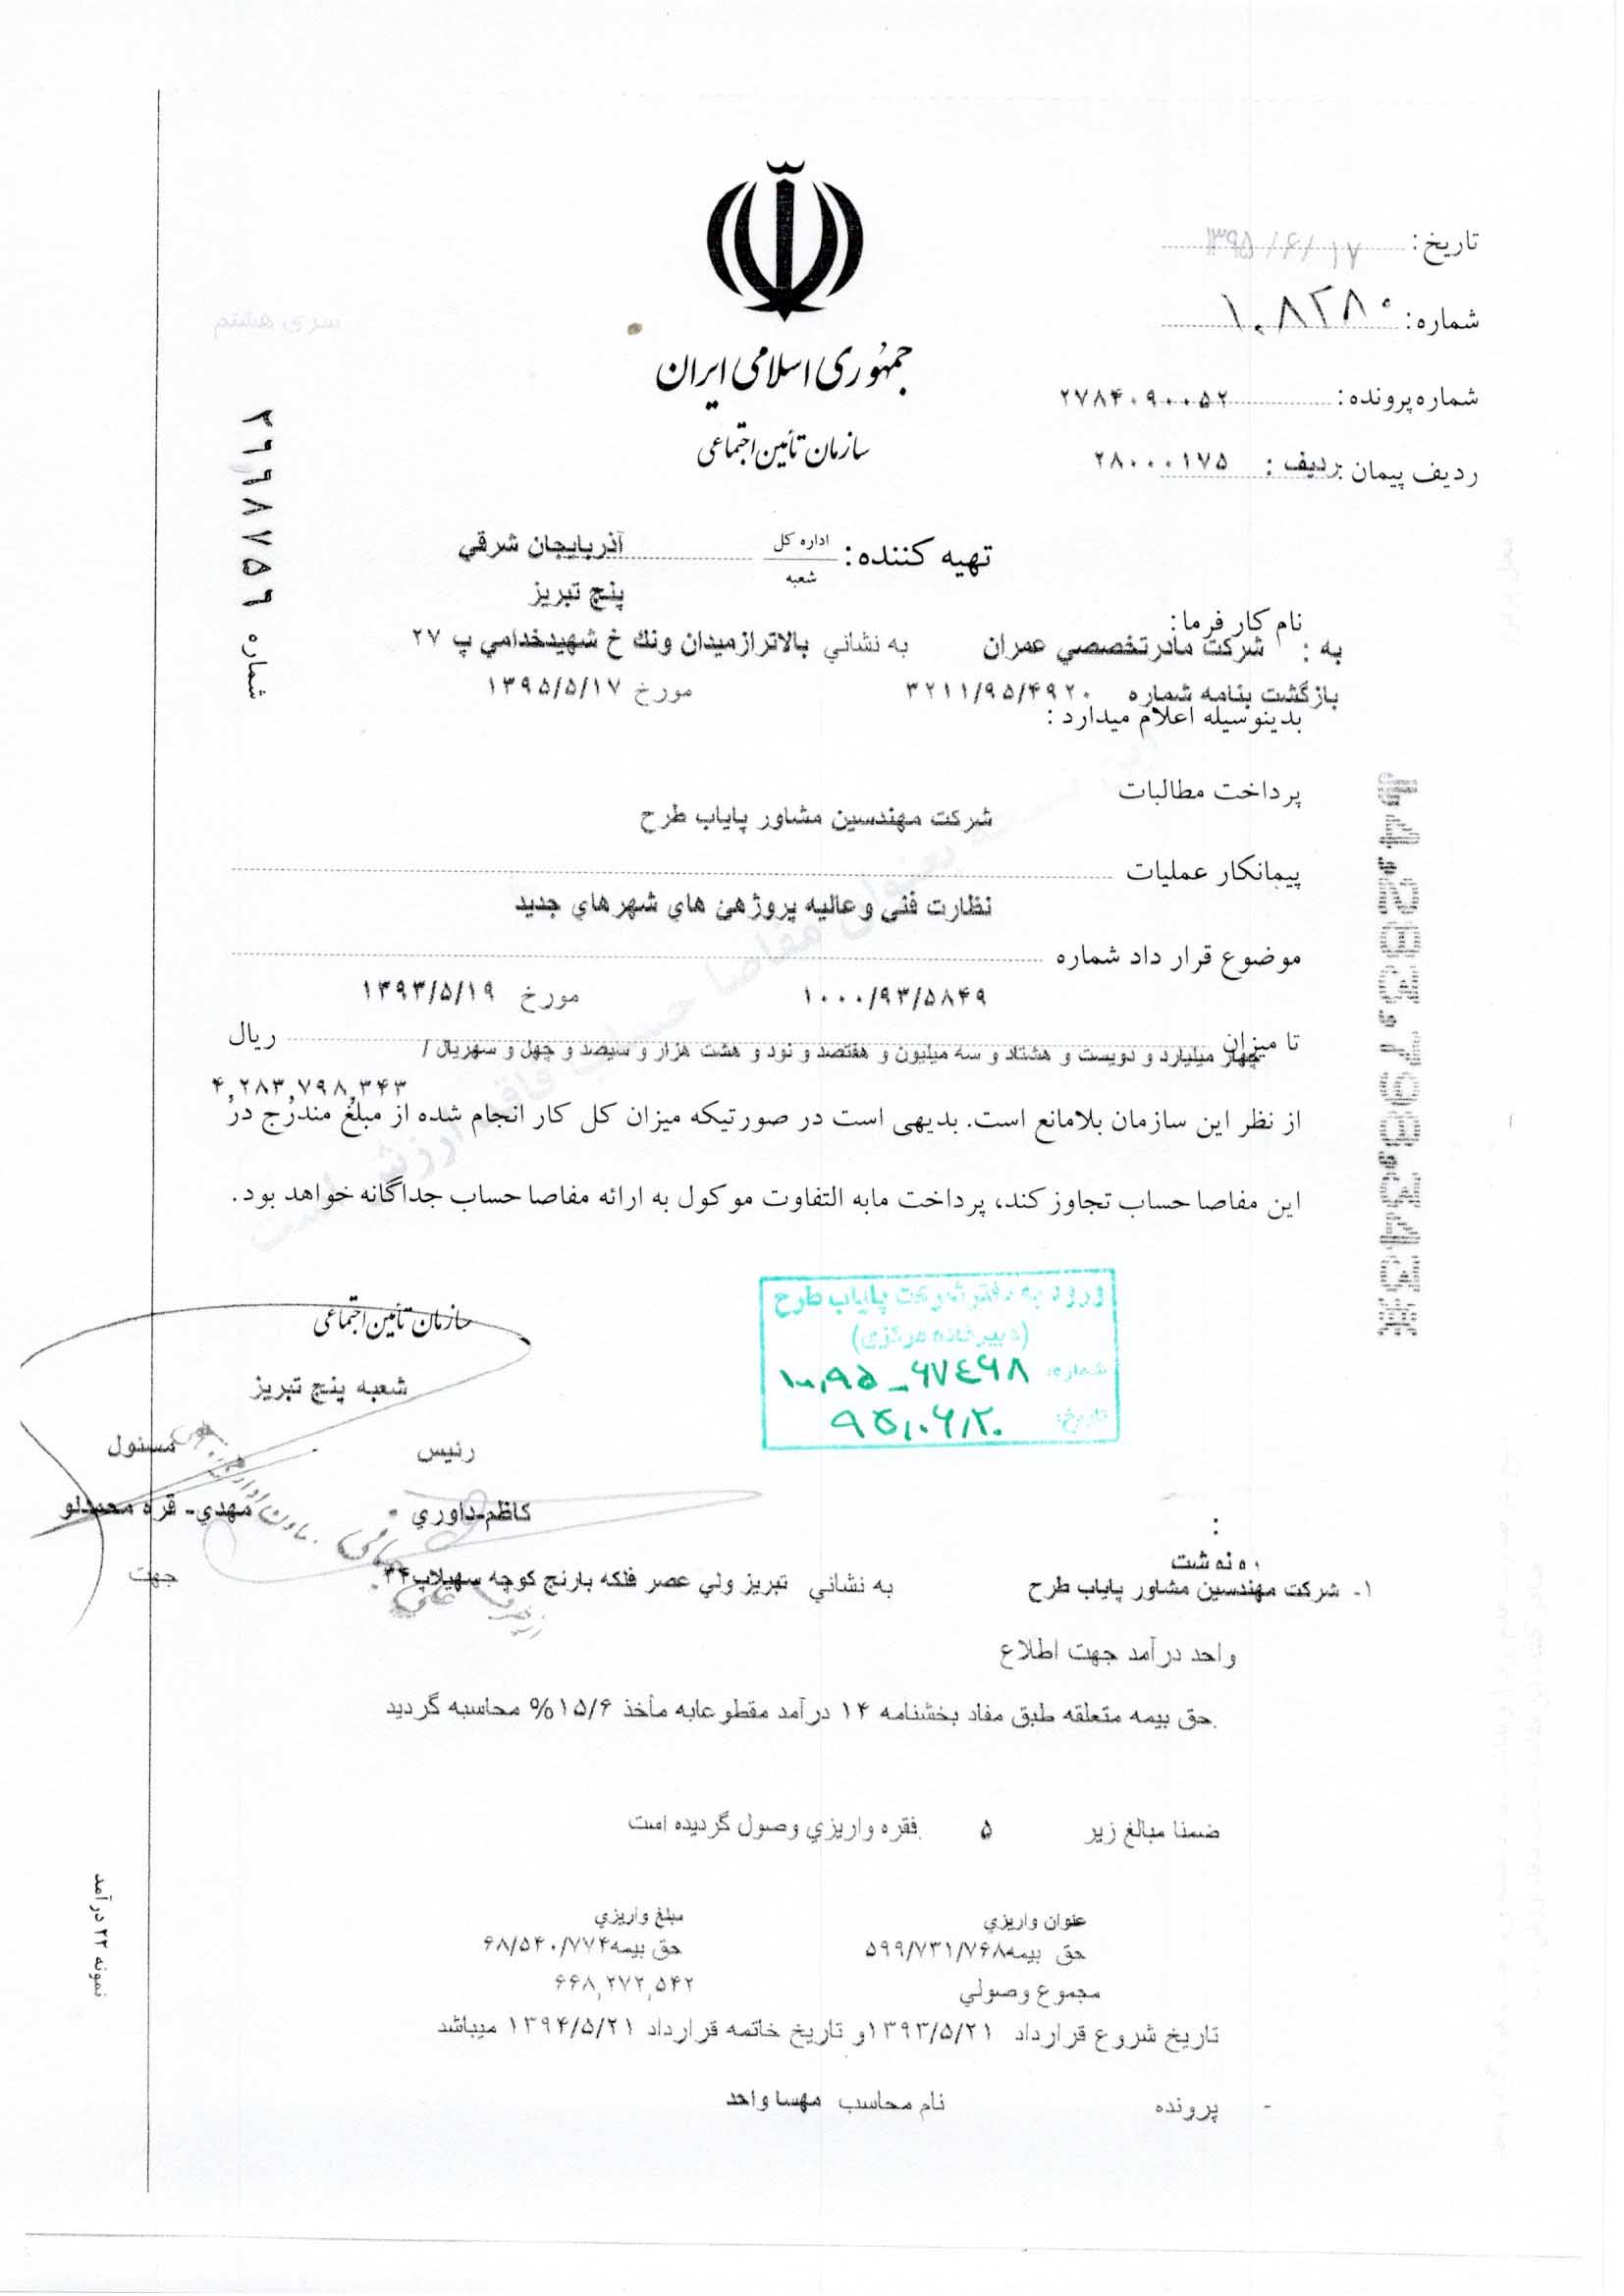 جمهوری اسلامی ایران
سازمان تأمین اجتماعی
تاریخ: ۱۳۹۵/۶/۱۷
شماره: ۱۰۸۲۸۰
شماره پرونده: ۲۷۸۴۰۹۰۰۵۲
ردیف پیمان: ردیف: ۲۸۰۰۰۱۷۵
سری هشتم
شماره ۳۹۹۸۷۵۹
تهیه کننده: اداره کل شعبه آذربایجان شرقي
پنج تبریز
نام کار فرما:
به : شرکت مادرتخصصي عمران به نشاني بالاترازمیدان ونك خ شهیدخدامي پ ۲۷
بازگشت بنامه شماره ۳۲۱۱/۹۵/۴۹۲۰ مورخ ۱۳۹۵/۵/۱۷
بدینوسیله اعلام میدارد :
پرداخت مطالبات
شرکت مهندسین مشاور پایاب طرح
پیمانکار عملیات
نظارت فني و عالیه پروژهئ هاي شهرهاي جدید
موضوع قرار داد شماره
۱۰۰۰/۹۳/۵۸۴۹ مورخ ۱۳۹۳/۵/۱۹
تا میزان ریال
چهار میلیارد و دویست و هشتاد و سه میلیون و هفتصد و نود و هشت هزار و سیصد و چهل و سهریال /
۴,۲۸۳,۷۹۸,۳۴۳
از نظر این سازمان بلامانع است. بدیهی است در صورتیکه میزان کل کار انجام شده از مبلغ مندرج در
این مفاصا حساب تجاوز کند، پرداخت مابه التفاوت موکول به ارائه مفاصا حساب جداگانه خواهد بود.
4,283,798,343*
ورود به دفتر شرکت پایاب طرح
(دبیرخانه مرکزی)
شماره: ۱۰۰,۹۵_۶۷۴۶۸
تاریخ: ۹۵,۰۶,۲۰
سازمان تأمین اجتماعی
شعبه پنج تبریز
رئیس مسئول
کاظم-داوري مهدي- قره محمدلو
جهت
:
رونوشت
۱- شرکت مهندسین مشاور پایاب طرح به نشاني تبریز ولي عصر فلکه بارنج کوچه سهیلاپ۳۴
واحد درآمد جهت اطلاع
حق بیمه متعلقه طبق مفاد بخشنامه ۱۴ درآمد مقطوعابه مأخذ ۱۵/۶% محاسبه گردید.
ضمنا مبالغ زیر ۵ فقره واریزي وصول گردیده است.
عنوان واریزي مبلغ واریزي
حق بیمه۵۹۹/۷۳۱/۷۶۸ حق بیمه۶۸/۵۴۰/۷۷۴
مجموع وصولي ۶۶۸,۲۷۲,۵۴۲
تاریخ شروع قرارداد ۱۳۹۳/۵/۲۱و تاریخ خاتمه قرارداد ۱۳۹۴/۵/۲۱ میباشد
- پرونده نام محاسب مهسا واحد
نمونه ۲۲ درآمد